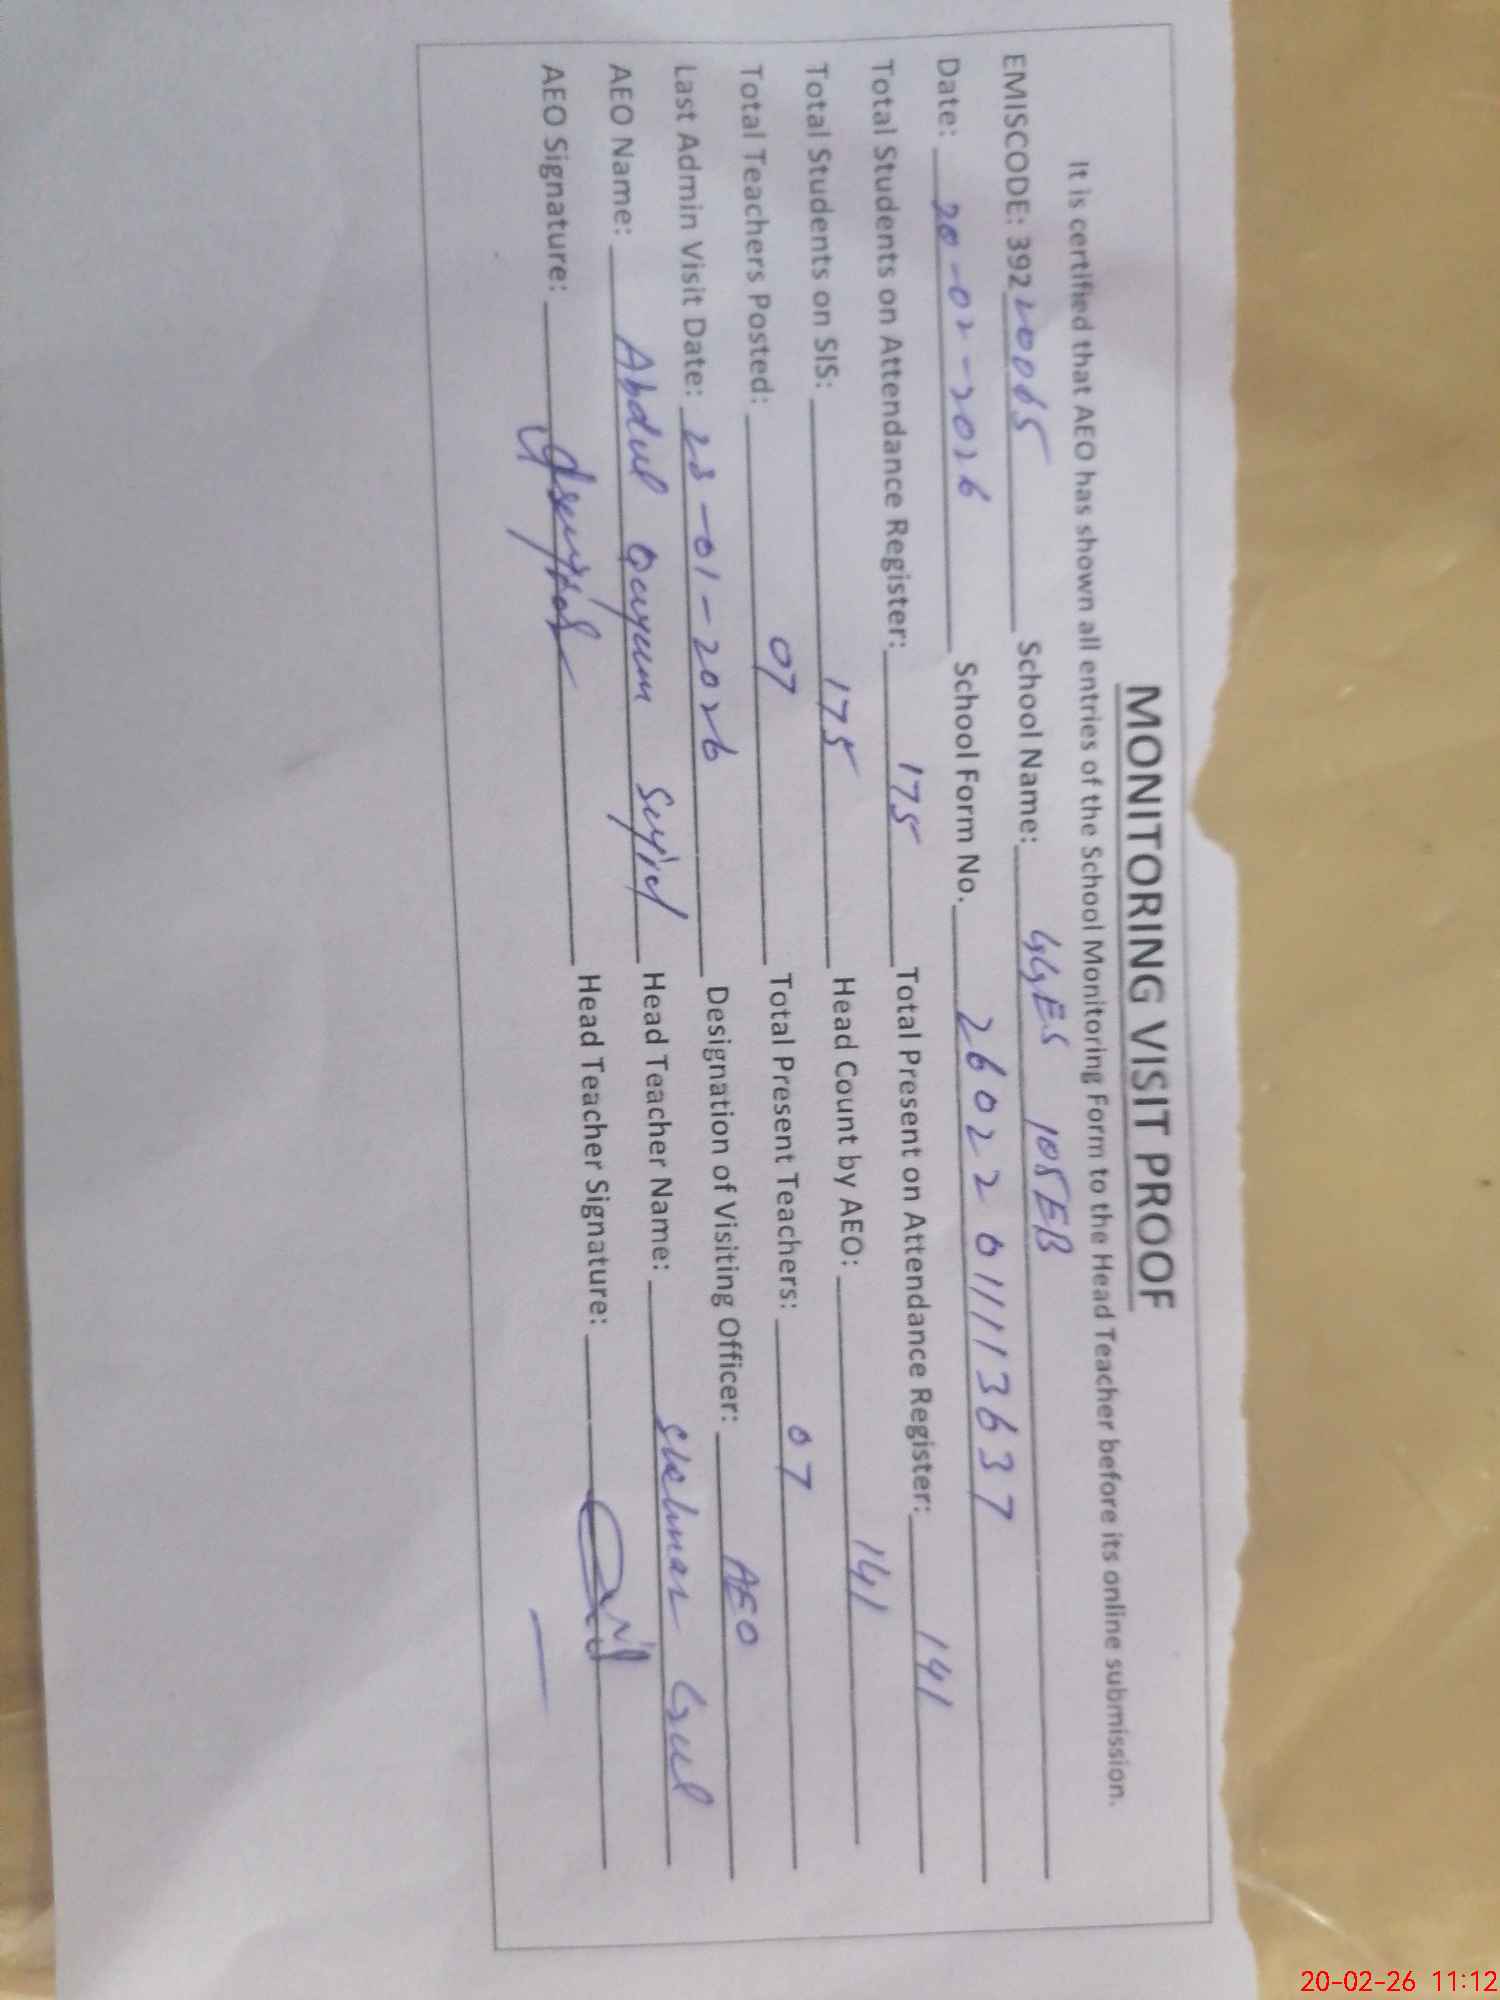 MONITORING VISIT PROOF
It is certified that AEO has shown all entries of the School Monitoring Form to the Head Teacher before its online submission.
EMISCODE: 39220065 School Name: GGES 105EB
Date: 20-02-2026 School Form No. 26022011113637
Total Students on Attendance Register: 175 Total Present on Attendance Register: 141
Total Students on SIS: 175 Head Count by AEO: 141
Total Teachers Posted: 07 Total Present Teachers: 07
Last Admin Visit Date: 23-01-2026 Designation of Visiting Officer: AEO
AEO Name: Abdul Qayum Head Teacher Name: Gul
AEO Signature: Head Teacher Signature:
20-02-26 11:12